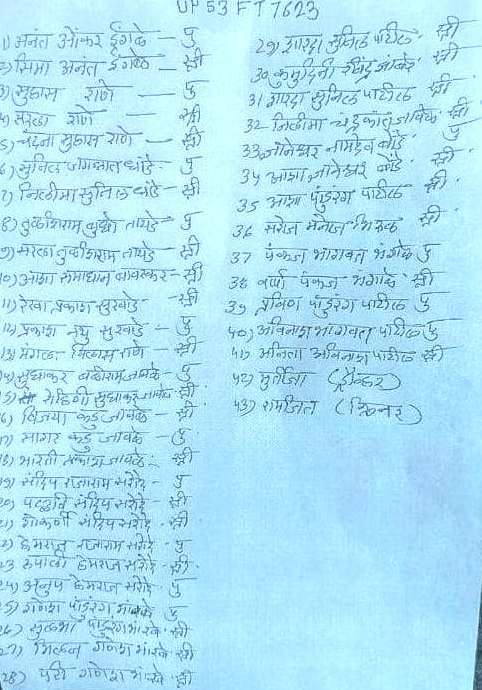 UP 53 FT 7623
1) अनंत ओंकर इंगळे — पु
2) सिमा अनंत इंगळे — स्त्री
3) सुहास राणे — पु
4) सरला राणे — स्त्री
5) चंदना सुहास राणे — स्त्री
6) सुनिल जगन्नाथ धांडे - पु
7) निलीमा सुनिल धांडे - स्त्री
8) तुळशिराम तायडे - पु
9) सरला तुळशिराम तायडे - स्त्री
10) आशा समाधान बावस्कर - स्त्री
11) रेखा प्रकाश सुरवाडे - स्त्री
12) प्रकाश नथु सुरवाडे - पु
13) मंगला विलास राणे - स्त्री
14) सुधाकर बळीराम जावळे - पु
15) रोहिणी सुधाकर जावळे - स्त्री
16) विजया कडु जावळे - स्त्री
17) सागर कडु जावळे - पु
18) भारती प्रकाश जावळे - स्त्री
19) संदिप राजाराम सरोदे - पु
20) संदिप सरोदे - स्त्री
21) गोकर्णी संदिप सरोदे - स्त्री
22) हेमराज राजाराम सरोदे - पु
23 रुपाली हेमराज सरोदे - स्त्री
24) अनुप हेमराज सरोदे - पु
25) गणेश पांडुरंग भारंबे पु
26) सुलभा पांडुरंग भारंबे स्त्री
27) मिलन गणेश भारंबे स्त्री
28) परी गणेश भारंबे स्त्री
29) शारदा सुनिल पाटील स्त्री
30 कुमुदिनी रविंद्र जावळे स्त्री
31 शारदा सुनिल पाटील स्त्री
32 निलीमा चंद्रकांत जावळे स्त्री
33 ज्ञानेश्वर नामदेव बोंडे पु
34 आशा ज्ञानेश्वर बोंडे स्त्री
35 आशा पांडुरंग पाटील स्त्री
36 सरोज मनोज भिरुड स्त्री
37 पंकज भागवत भंगाळे पु
38 वर्षा पंकज भंगाळे स्त्री
39 प्रविण पांडुरंग पाटील पु
40) अविनाश भागवत पाटील पु
41) अनिता अविनाश पाटील स्त्री
42) मुर्तीजा (ड्रायव्हर)
43) रामजित (क्लिनर)